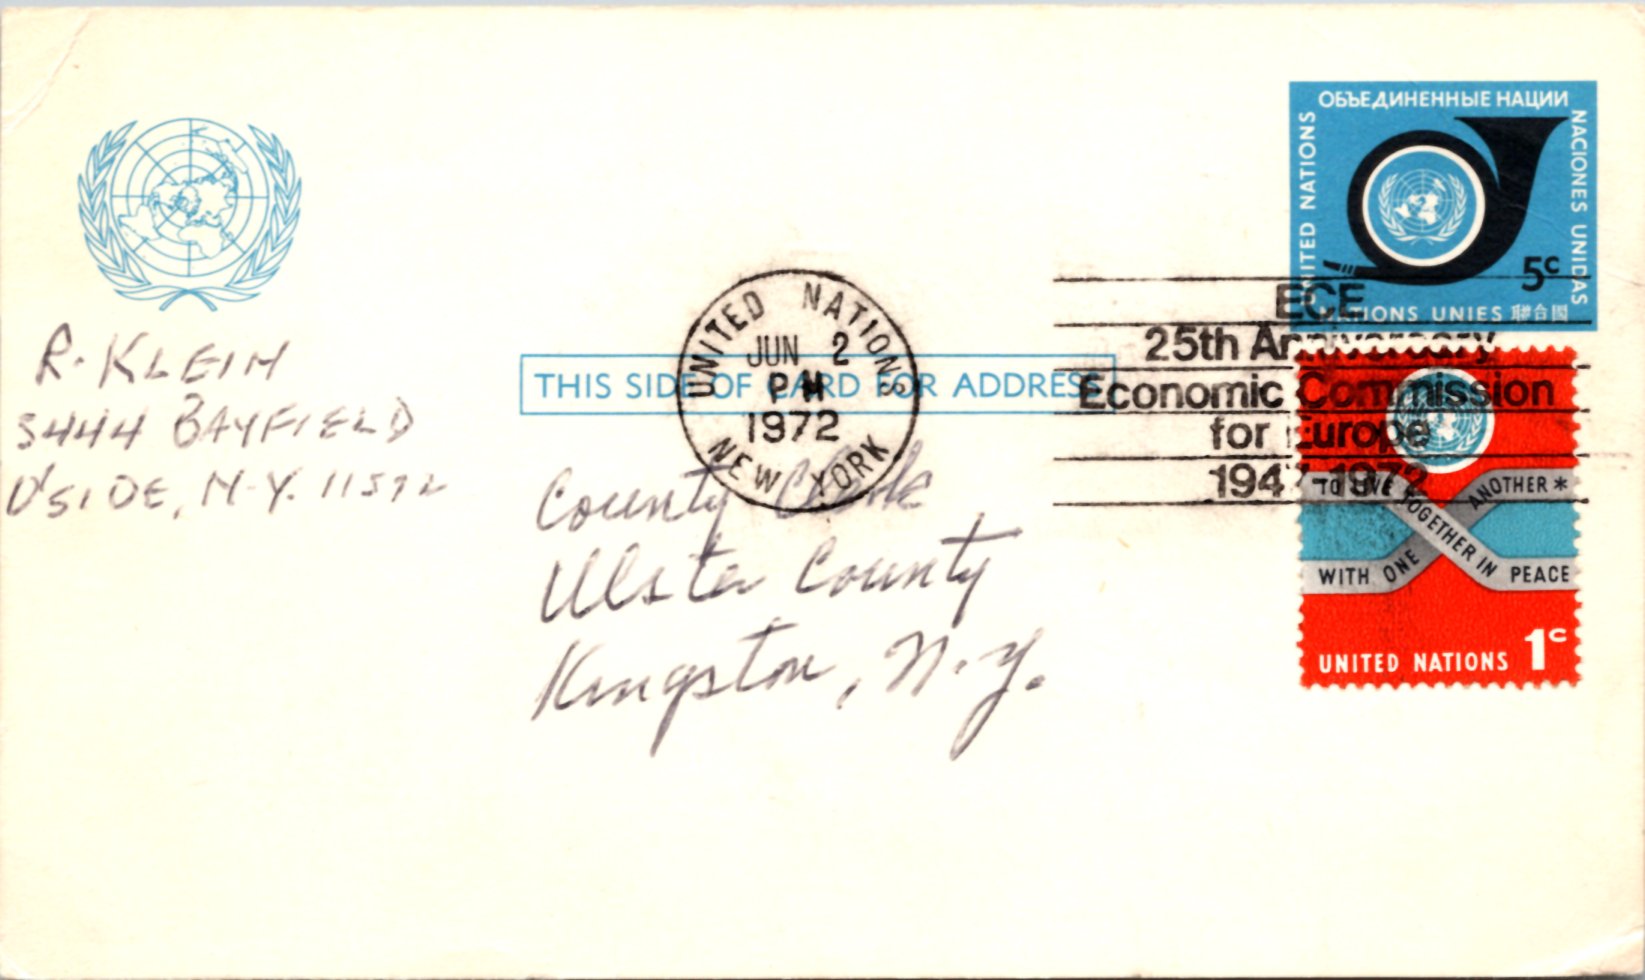 ОБЪЕДИНЕННЫЕ НАЦИИ
UNITED NATIONS
NACIONES UNIDAS
5c
NATIONS UNIES 聯合國
R. KLEIN
3444 BAYFIELD
O'SIDE, N.Y. 11572
THIS SIDE OF CARD FOR ADDRESS
UNITED NATIONS
JUN 2
PM
1972
NEW YORK
ECE
25th Anniversary
Economic Commission
for Europe
1947-1972
County Clerk
Ulster County
Kingston, N.Y.
TO LIVE TOGETHER IN PEACE
WITH ONE ANOTHER *
UNITED NATIONS 1c